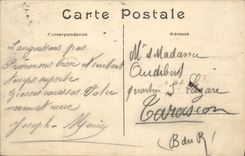 Carte Postale
Correspondance
Adresse
Languissons pas
Prenons bien
temps
Grosses caresses Votre
neveu et nièce
Joseph - Marie
Mr et Madame
Audibert
quartier St Lazare
Tarascon
B du R